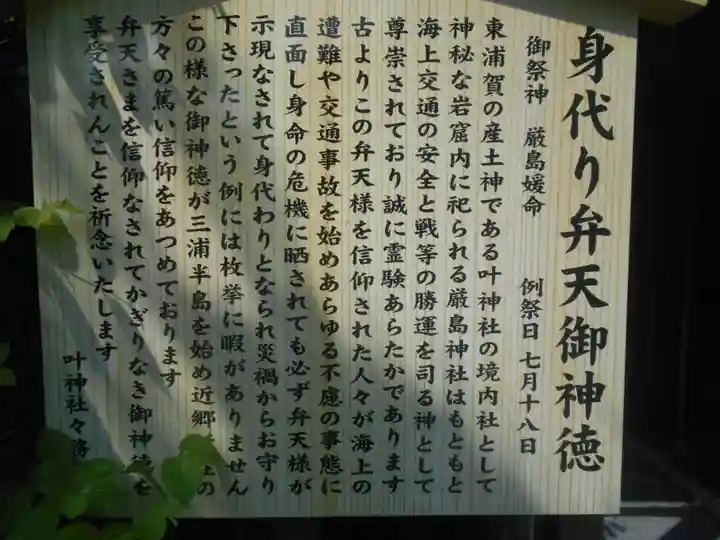 身代り弁天御神徳
御祭神 厳島媛命 例祭日 七月十八日
東浦賀の産土神である叶神社の境内社として
神秘な岩窟内に祀られる厳島神社はもともと
海上交通の安全と戦等の勝運を司る神として
尊崇されており誠に霊験あらたかであります
古よりこの弁天様を信仰された人々が海上の
遭難や交通事故を始めあらゆる不慮の事態に
直面し身命の危機に晒されても必ず弁天様が
示現なされて身代わりとなられ災禍からお守り
下さったという例には枚挙に暇がありません
この様な御神徳が三浦半島を始め近郷の
方々の篤い信仰をあつめております
弁天さまを信仰なされてかぎりなき御神徳を
享受されんことを祈念いたします
叶神社々務